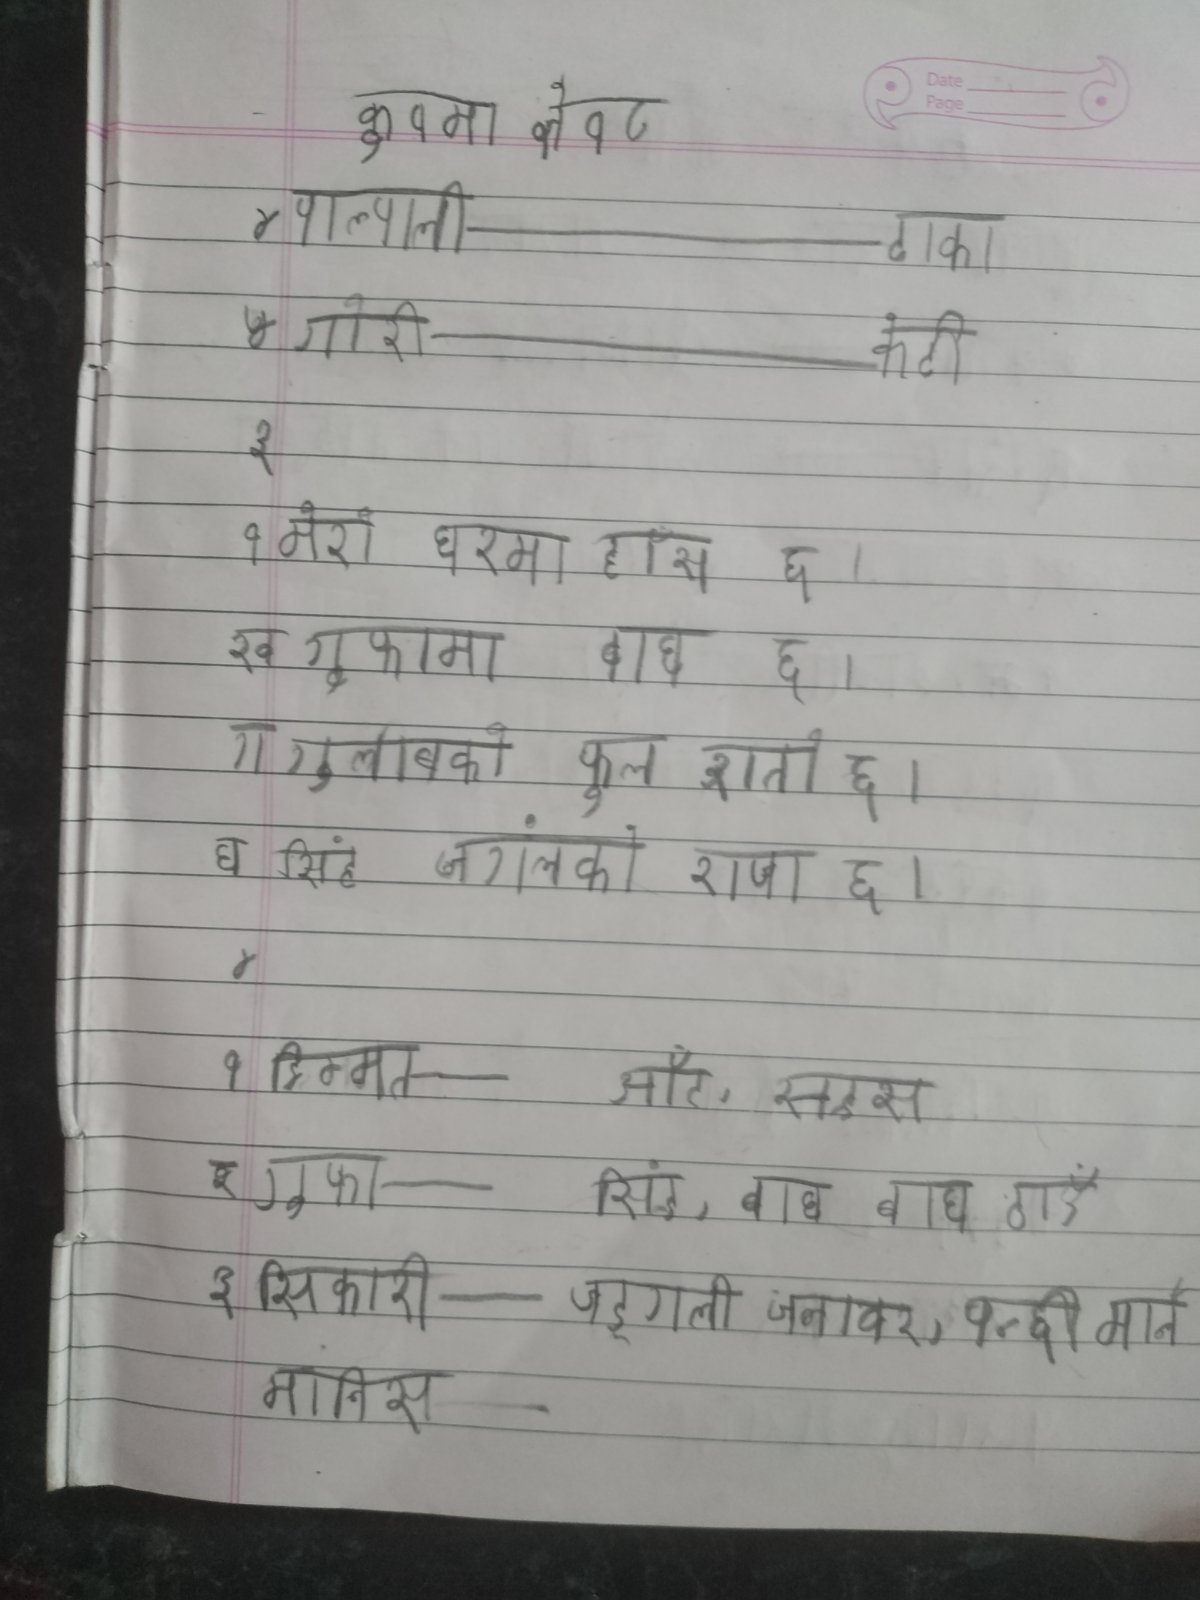 Date
Page
कुपमा केवट
४ पाल्पाली ——— ढाका
५ गोरी ——— केटी
३
१ मेरो घरमा हाँस छ ।
ख गुफामा बाघ छ ।
ग गुलाबको फुल रातो छ ।
घ सिंह जगंलको राजा छ ।
४
१ हिम्मत — आँट, सहस
२ गुफा — सिंह, बाघ बाघ ठाउँ
३ सिकारी — जङ्गली जनावर, पन्छी मार्ने
मानिस —